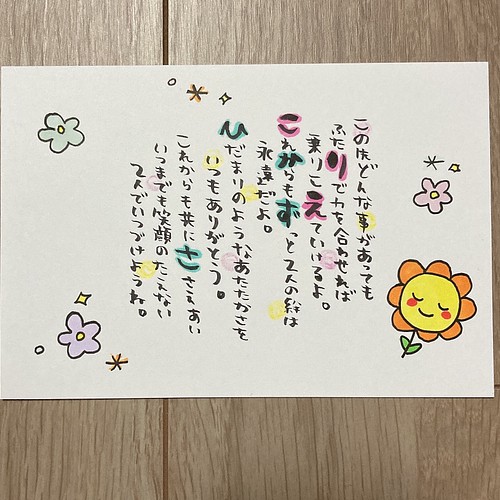 この先どんな事があっても
ふたりで力を合わせれば
乗りこえていけるよ。
これからもずっと2人の絆は
永遠だよ。
ひだまりのようなあたたかさを
いつもありがとう。
これからも共にささえあい
いつまでも笑顔のたえない
2人でいつづけようね。